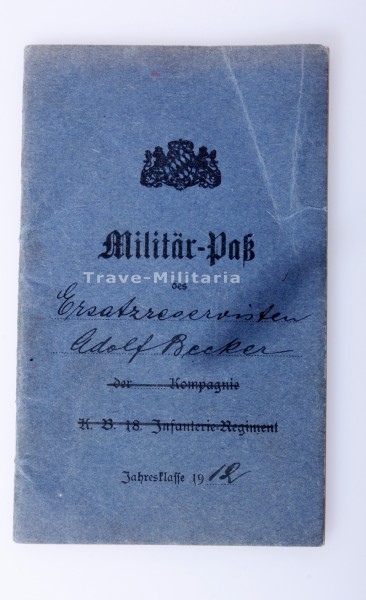 Militär-Paß
Trave-Militaria
des
Ersatzreservisten
Adolf Becker
der Kompagnie
K. B. 18. Infanterie-Regiment
Jahresklasse 1912